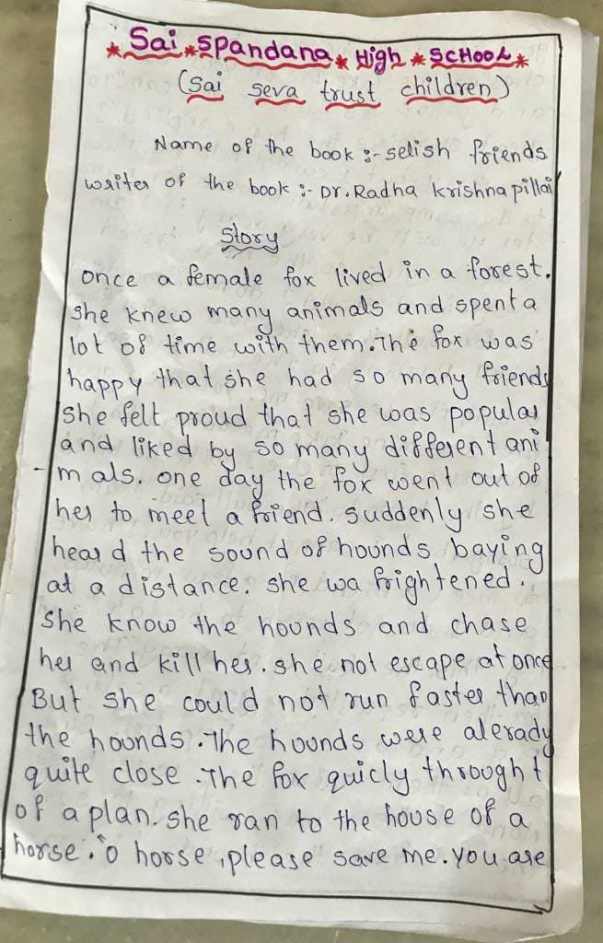 * Sai * Spandana * High * SCHOOL *
(Sai Seva trust children)
Name of the book :- selish friends
writer of the book :- Dr. Radha krishna pillai
Story
once a female fox lived in a forest.
she knew many animals and spent a
lot of time with them. The fox was
happy that she had so many friends
she felt proud that she was popular
and liked by so many different ani
- mals. one day the fox went out of
her to meet a friend. suddenly she
heard the sound of hounds baying
at a distance. she wa frightened.
she know the hounds and chase
her and kill her. she not escape at once
But she could not run faster than
the hounds. The hounds were alerady
quite close. The fox quicly throught
of a plan. she ran to the house of a
horse. o horse, please save me. you are